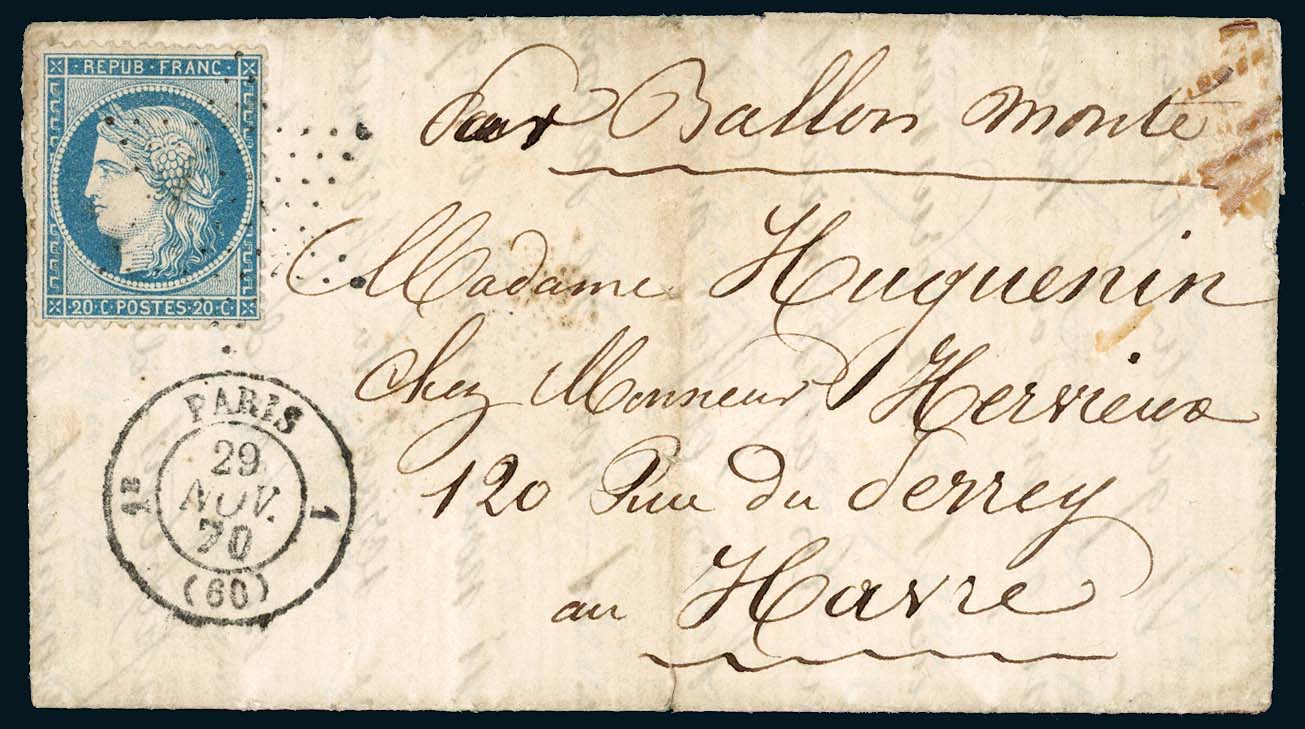 · REPUB · FRANC ·
· 20 · C · POSTES · 20 · C ·
Par Ballon monté
Madame Huguenin
Chez Monsieur Hervieux
120 Rue du Perrey
au Havre
PARIS
1E 1
29
NOV.
70
(60)